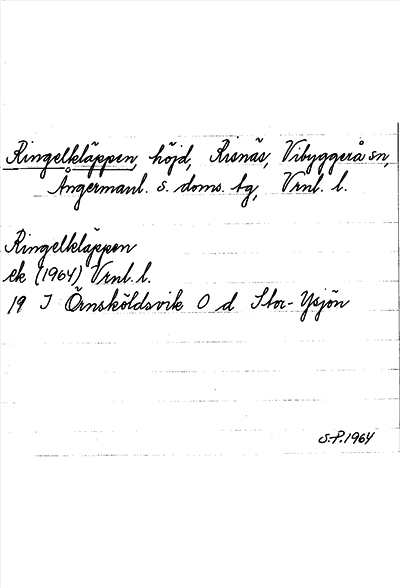 Ringelkläppen, höjd, Risnäs, Vibyggerå sn,
Ångermanl. s. doms. tg, Vrnl. l.
Ringelkläppen
ek (1964) Vrnl. l.
19 I Örnsköldsvik O d Stor-Ysjön
S-P. 1964